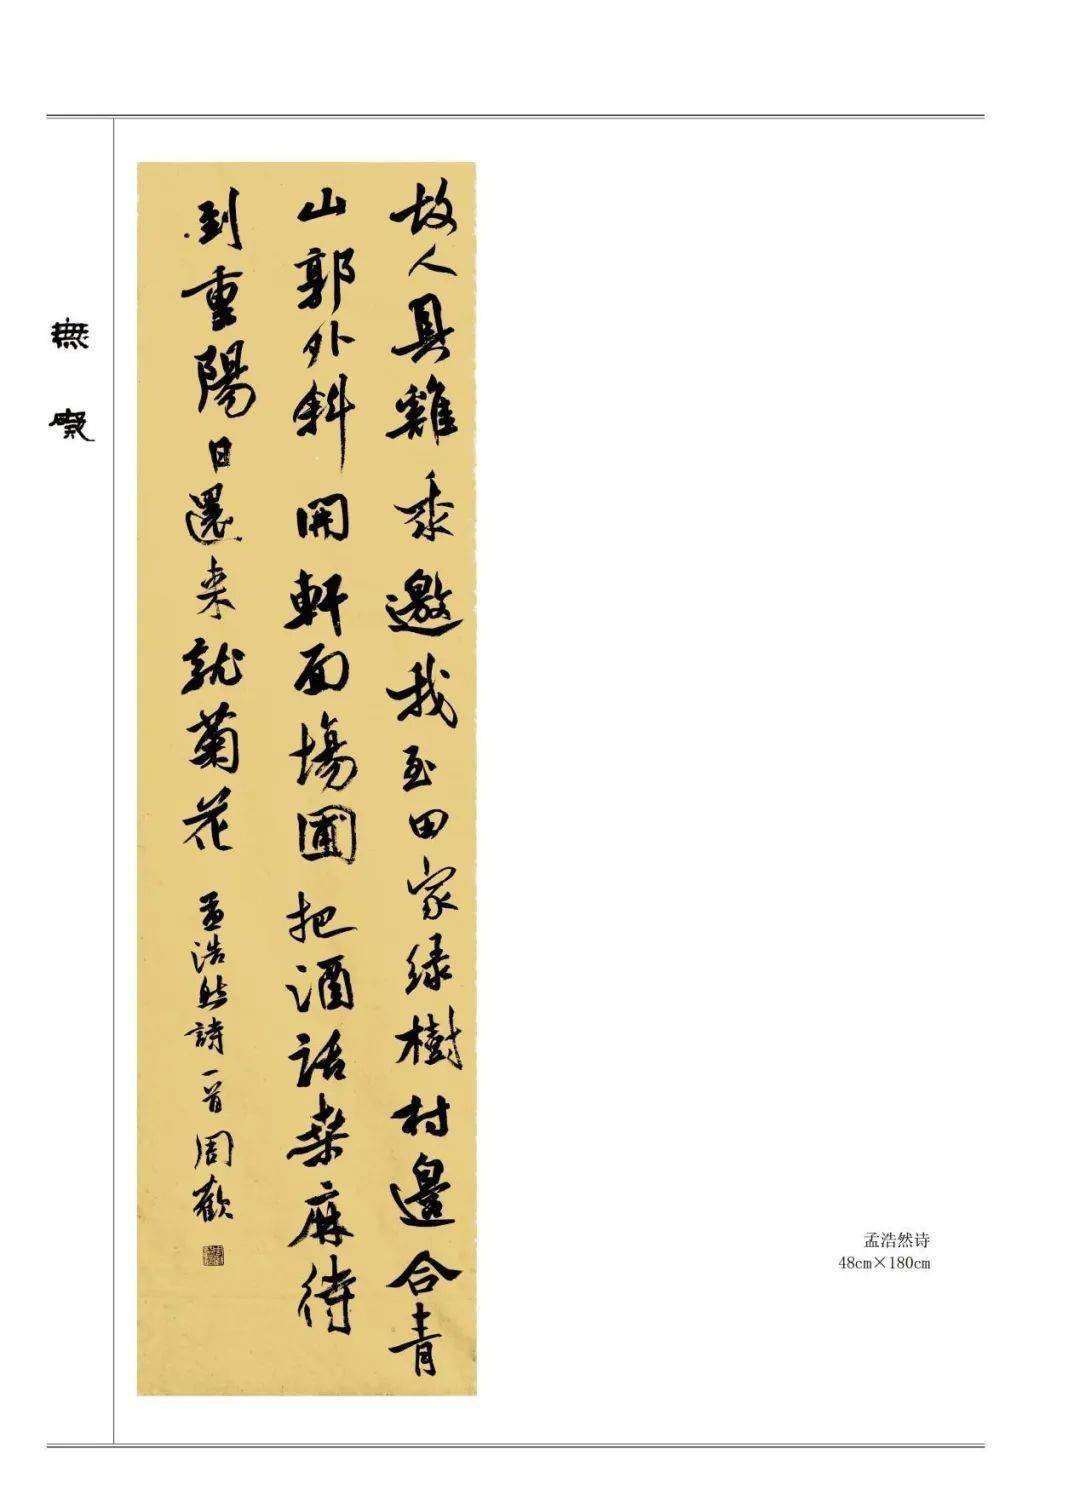 故人具雞黍邀我至田家緑樹村邊合青
山郭外斜開軒面場圃把酒話桑麻待
到重陽日還来就菊花 孟浩然詩一首 周歡
孟浩然诗
48cm×180cm